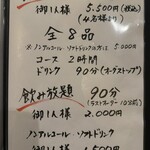 御1人様 5.500円(税込)
(4名様より)
全8品
※ノンアルコール・ソフトドリンクは 5.000円
コース 2時間
ドリンク 90分(オーダーストップ)
飲み放題 90分
(ラストオーダー10分前)
御1人様 2.000円
ノンアルコール・ソフトドリンク
御1人様 1.500円